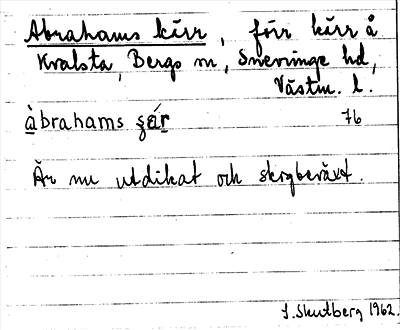 Abrahams kärr, förr kärr å
Kvalsta, Bergs sn, Snevringe hd,
Västm. l.
àbrahams 76
Är nu utdikat och skogbeväxt.
J. Skutberg 1962.